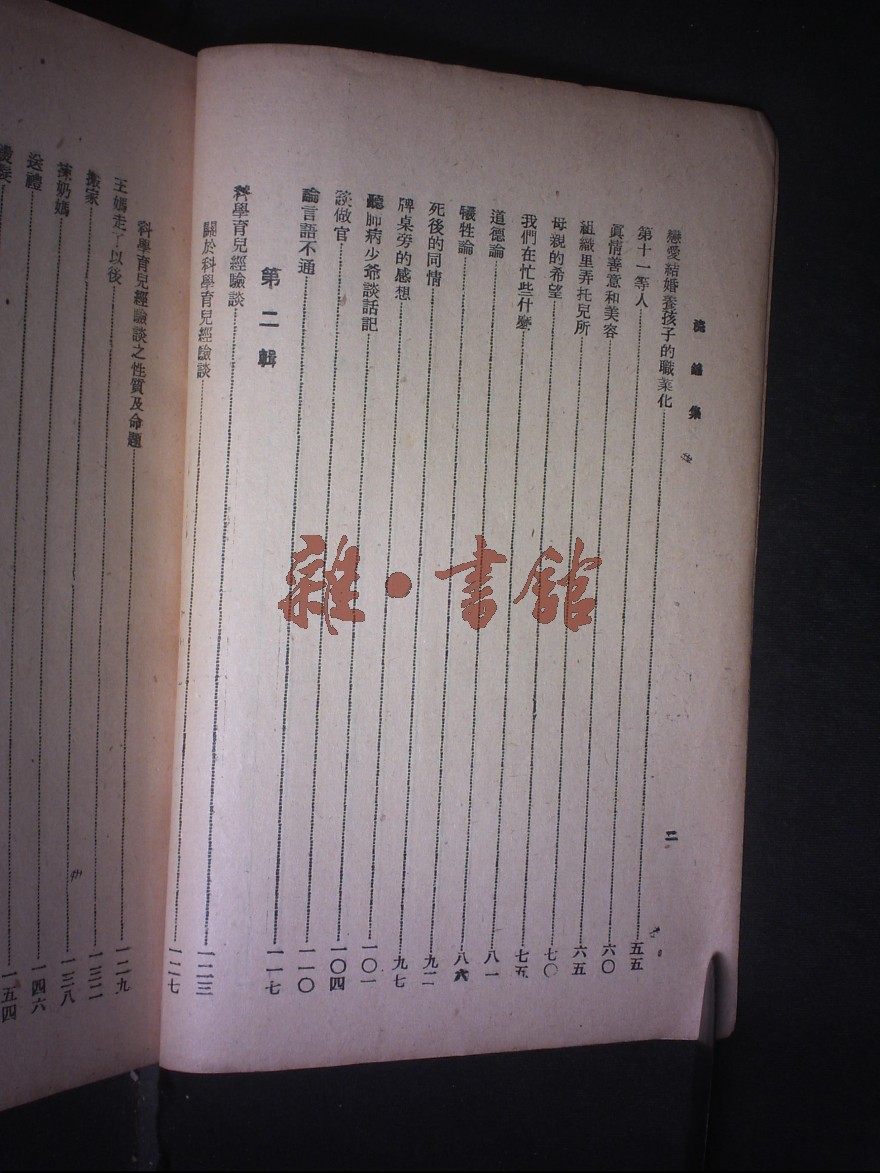 浣錦集 二
戀愛結婚養孩子的職業化……五五
第十一等人……六〇
眞情善意和美容……六五
組織里弄托兒所……七〇
母親的希望……七五
我們在忙些什麼……八一
道德論……八六
犧牲論……九二
死後的同情……九七
牌桌旁的感想……一〇一
聽肺病少爺談話記……一〇四
談做官……一一〇
論言語不通……一一七
第二輯
科學育兒經驗談……一二三
關於科學育兒經驗談……一二七
科學育兒經驗談之性質及命題……一二九
王媽走了以後……一三二
搬家……一三八
揀奶媽……一四六
送禮……一五四
雜·書館